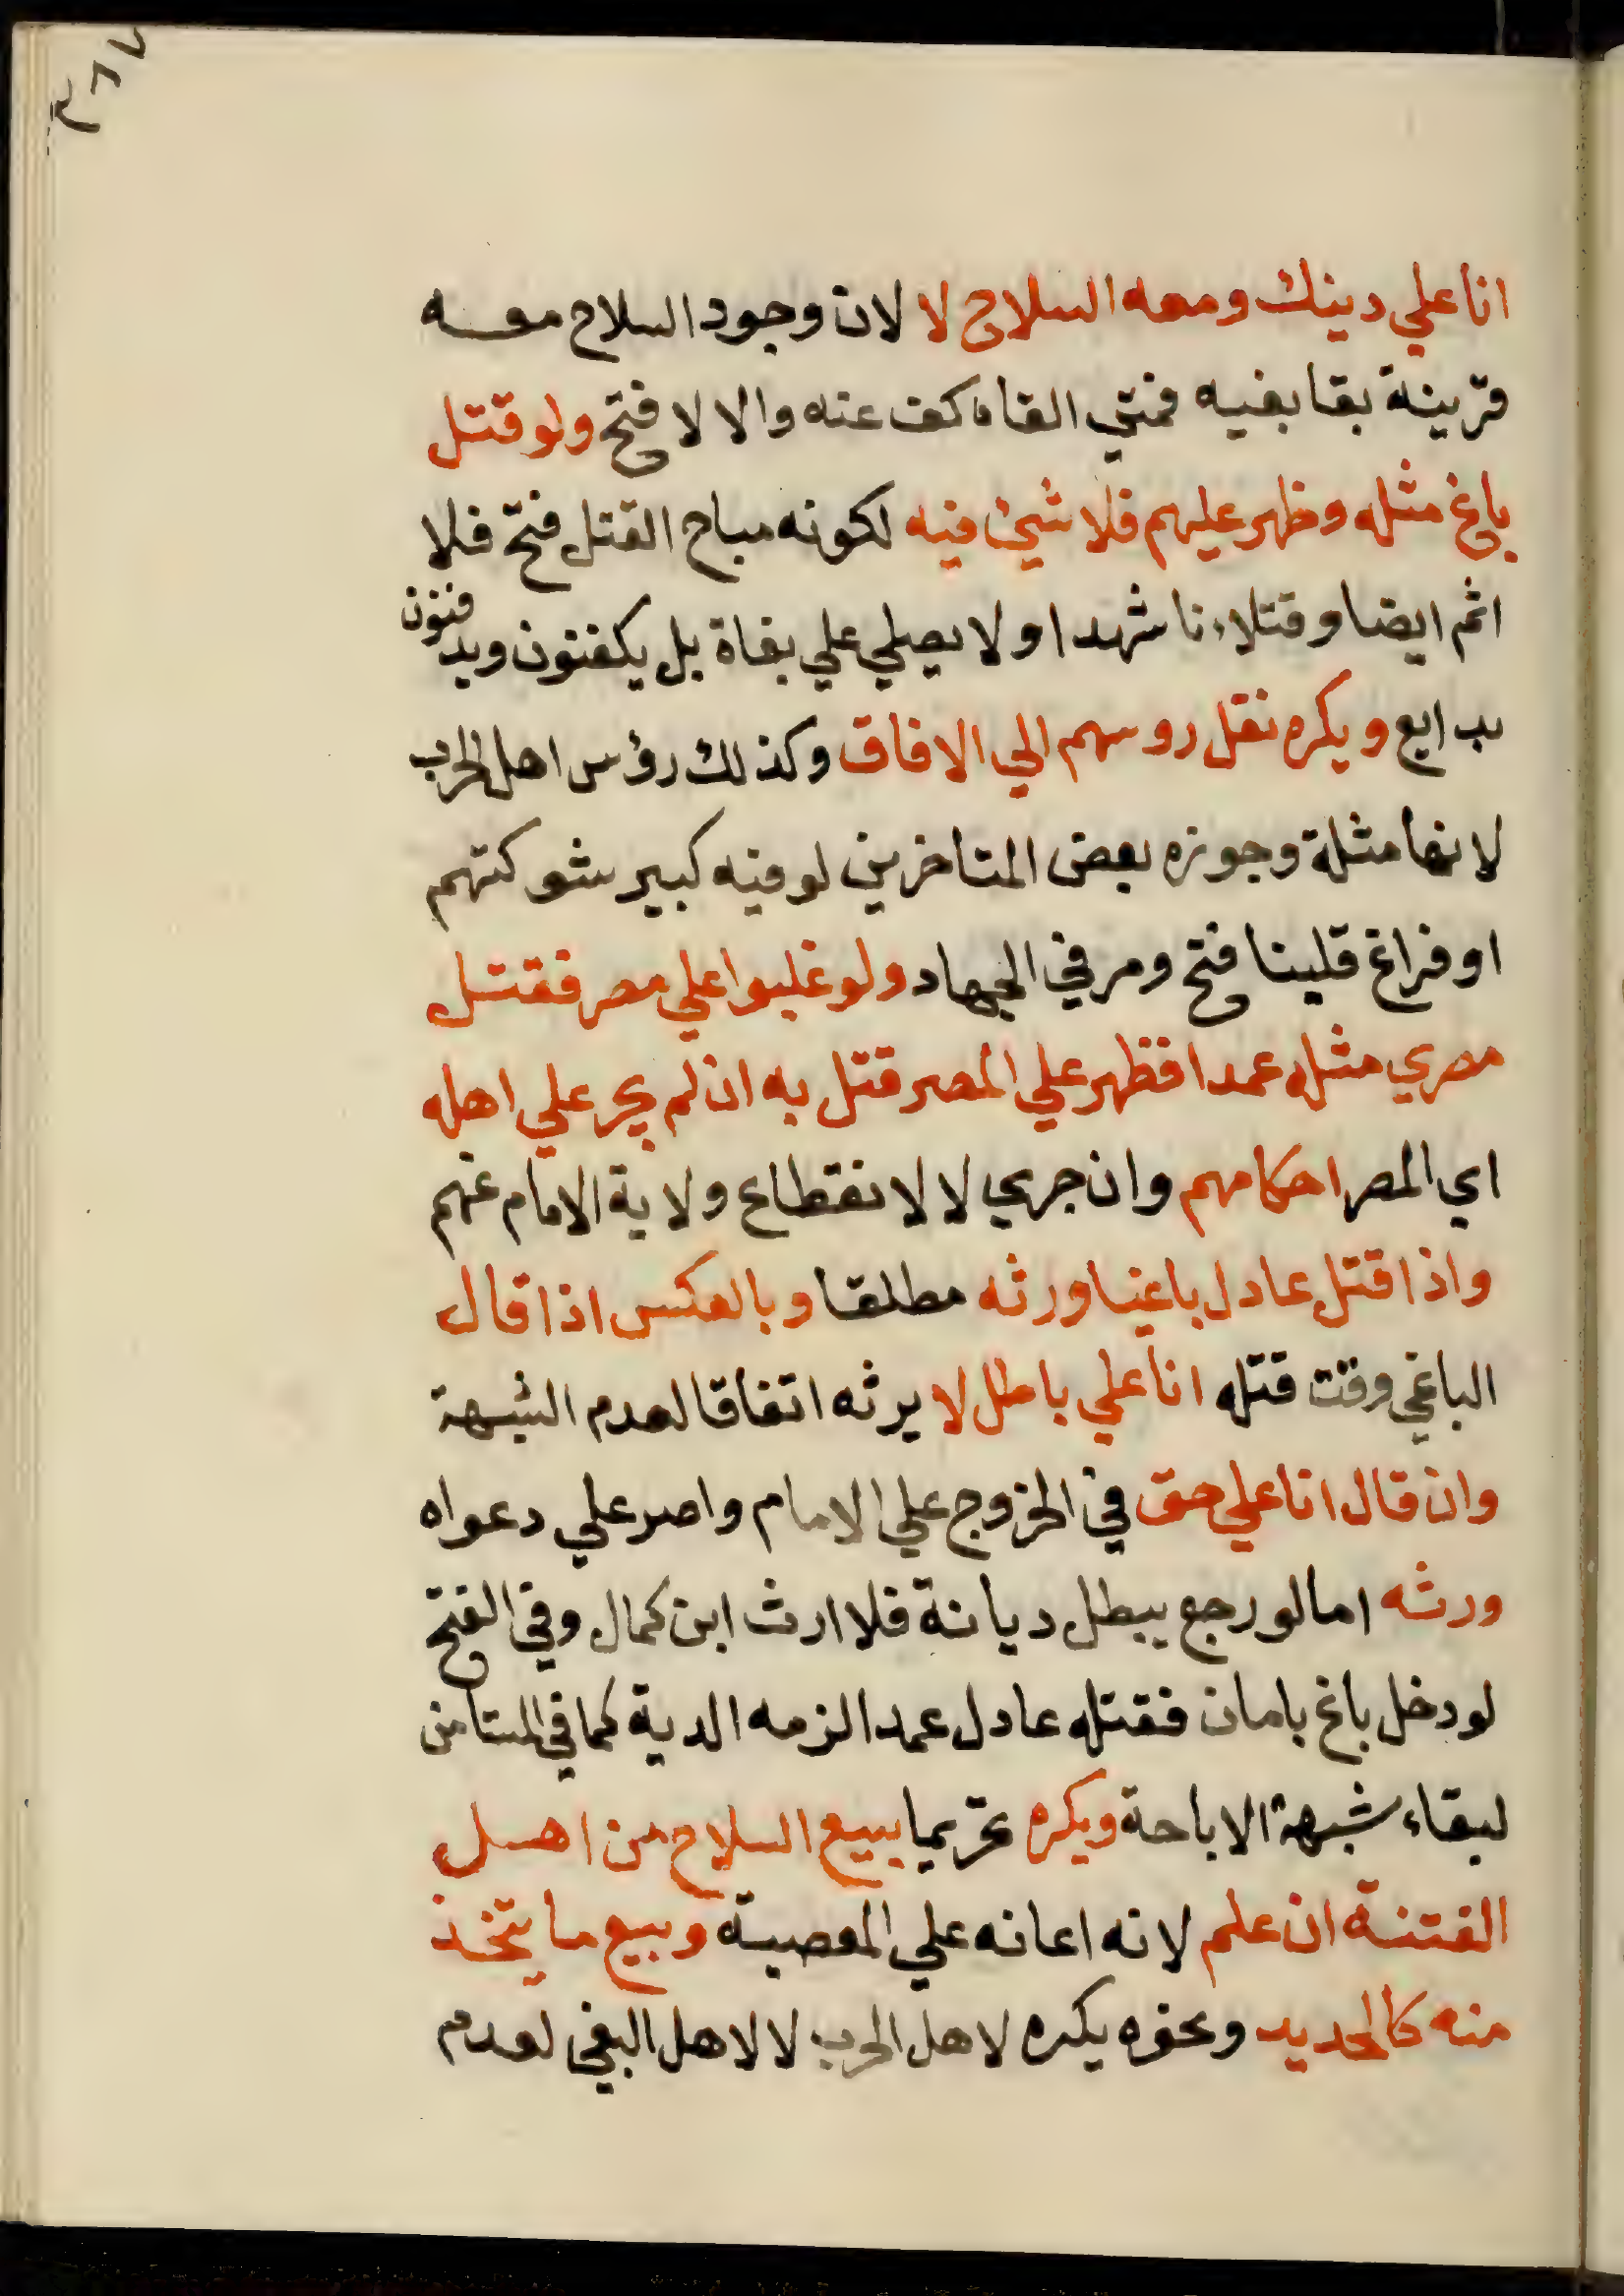 ٣٦٧
انا علي دينك ومعه السلاح لا لان وجود السلاح معه
قرينة بقا بغيه فمتي القاه كف عنه والا لا فتح ولو قتل
باغ مثله وظهر عليهم فلا شيئ فيه لكونه مباح القتل فتح فلا
اثم ايضا وقتلاء نا شهدا ولا يصلي علي بغاة بل يكفنون ويدفنون
بدايع ويكره نقل روسهم الي الافاق وكذلك رؤس اهل الحرب
لانها مثلة وجوزه بعض المتاخرين لو فيه كبير شوكتهم
او فراغ قلبنا فتح ومر في الجهاد ولو غلبوا علي مصر فقتل
مصري مثله عمدا فظهر علي المصر قتل به ان لم يجر علي اهله
اي المصر احكامهم وان جري لا لانقطاع ولاية الامام عنهم
واذا قتل عادل باغيا ورثه مطلقا وبالعكس اذا قال
الباغي وقت قتله انا علي باطل لا يرثه اتفاقا لعدم الشبهة
وان قال انا علي حق في الخروج علي الامام واصر علي دعواه
ورثه اما لو رجع يبطل ديانة فلا ارث ابن كمال وفي الفتح
لو دخل باغ بامان فقتله عادل عمدا لزمه الدية كما في المستامن
لبقاء شبهة الاباحة ويكره تحريما ببيع السلاح من اهل
الفتنة ان علم لانه اعانه علي المعصية وبيع ما يتخذ
منه كالحديد ونحوه يكره لاهل الحرب لا لاهل البغي لعدم